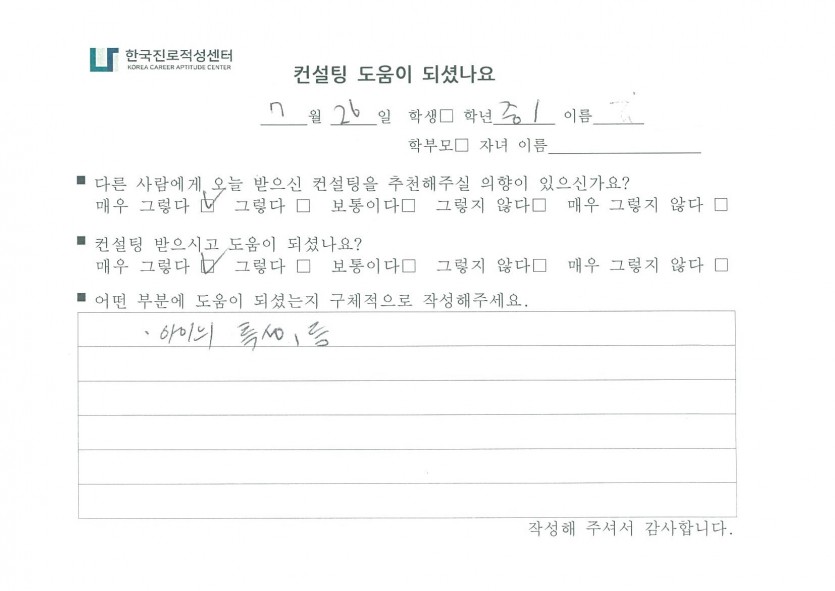 한국진로적성센터
KOREA CAREER APTITUDE CENTER
컨설팅 도움이 되셨나요
7 월 26 일 학생□ 학년 중1 이름
학부모□ 자녀 이름
■ 다른 사람에게 오늘 받으신 컨설팅을 추천해주실 의향이 있으신가요?
매우 그렇다 ☑ 그렇다 □ 보통이다□ 그렇지 않다□ 매우 그렇지 않다 □
■ 컨설팅 받으시고 도움이 되셨나요?
매우 그렇다 ☑ 그렇다 □ 보통이다□ 그렇지 않다□ 매우 그렇지 않다 □
■ 어떤 부분에 도움이 되셨는지 구체적으로 작성해주세요.
· 아이의 특성, 등
작성해 주셔서 감사합니다.